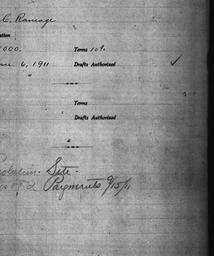 C. Ramage
000. Terms 10%
6, 1911 Drafts Authorized ✓
Terms
Drafts Authorized
Site -
Payments 9/15/11